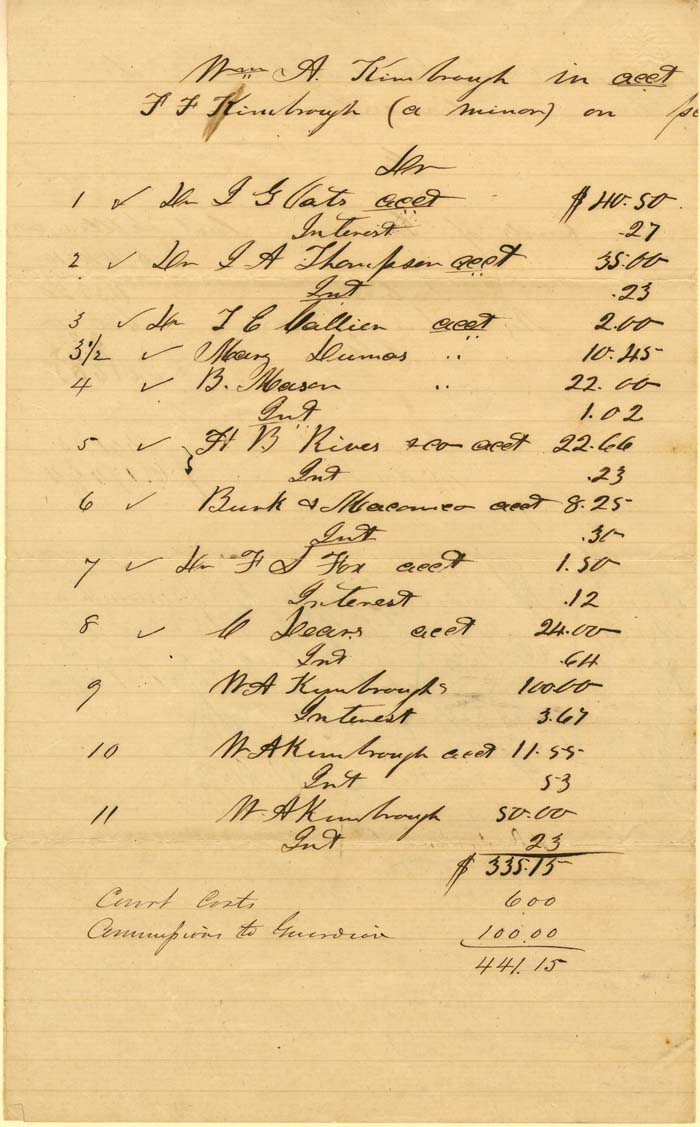 Wm A. Kimbrough in acct
F F Kimbrough (a minor) on
Dr
1 ✓ Dr J G Oats acct $40.50
Interest .27
2 ✓ Dr J A Thompson acct 35.00
Int .23
3 ✓ Dr T C Vallien acct 2.00
3 1/2 ✓ Mary Dumas " 10.45
4 ✓ B. Mason " 22.00
Int 1.02
5 ✓ H B Rives & co acct 22.66
Int .23
6 ✓ Burk & acct 8.25
Int .30
7 ✓ Dr F S Fox acct 1.50
Interest .12
8 ✓ C Deans acct 24.00
Int .64
9 W A Kimbroughs 100.00
Interest 3.67
10 W. A Kimbrough acct 11.55
Int 53
11 W. A Kimbrough 50.00
Int 23
$ 335.15
Court Costs 6 00
Commissions to Guardian 100.00
441.15